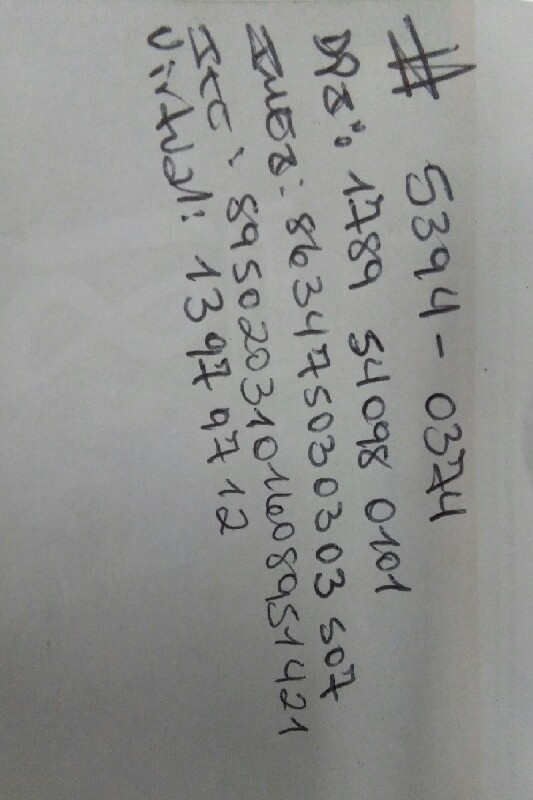 # 5394 - 0374
DPI: 1789 54098 0101
IMEI: 863475030303507
ICC: 8950203101608951421
Virtual: 13979712